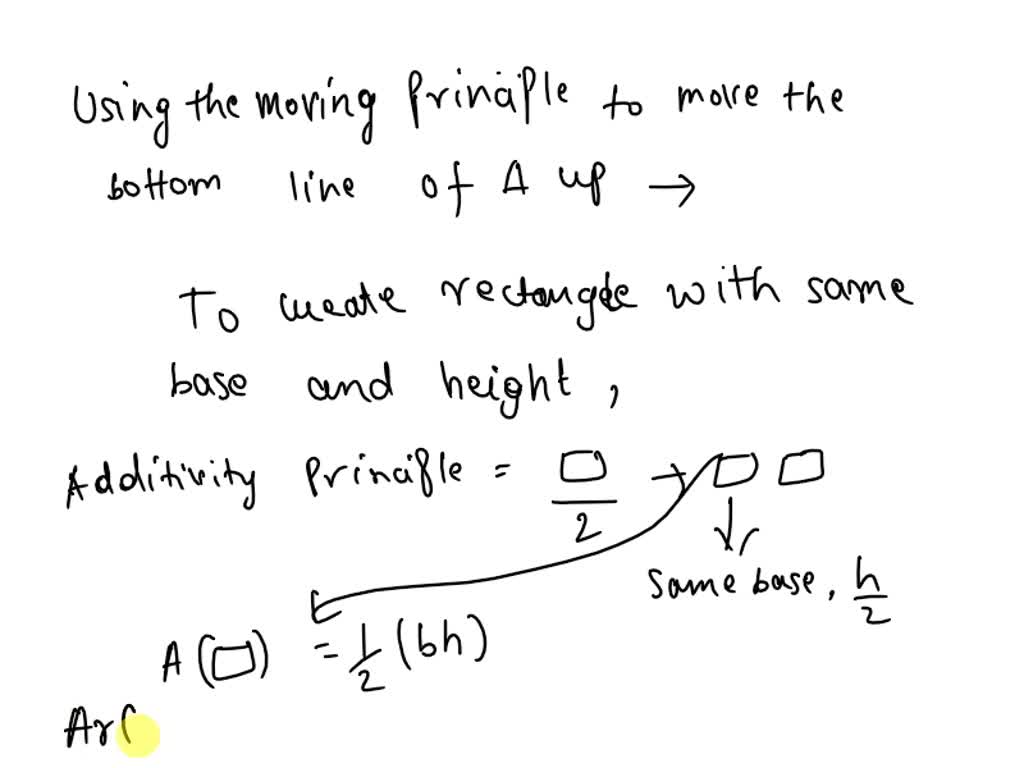 Using the moving Prinaiple to move the
bottom line of A up →
To create rectangle with same
base and height ,
Additivity Principle = □/2 → □ □
same base , h/2
A (□) = 1/2 (bh)
Ar(